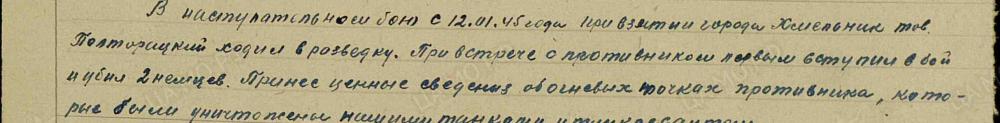 В наступательном бою с 12.01.45 года при взятии города Хмельник тов.
Полторацкий ходил в разведку. При встрече с противником первым вступил в бой
и убил 2 немцев. Принес ценные сведения об огневых точках противника, кото-
рые были уничтожены нашими танками и танкодесантом